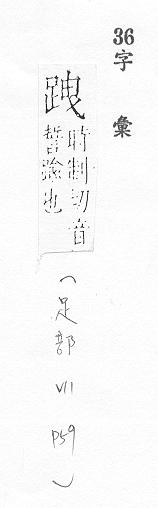 36字彙
跩
時制切音
誓踰也
(足部 VII P59)